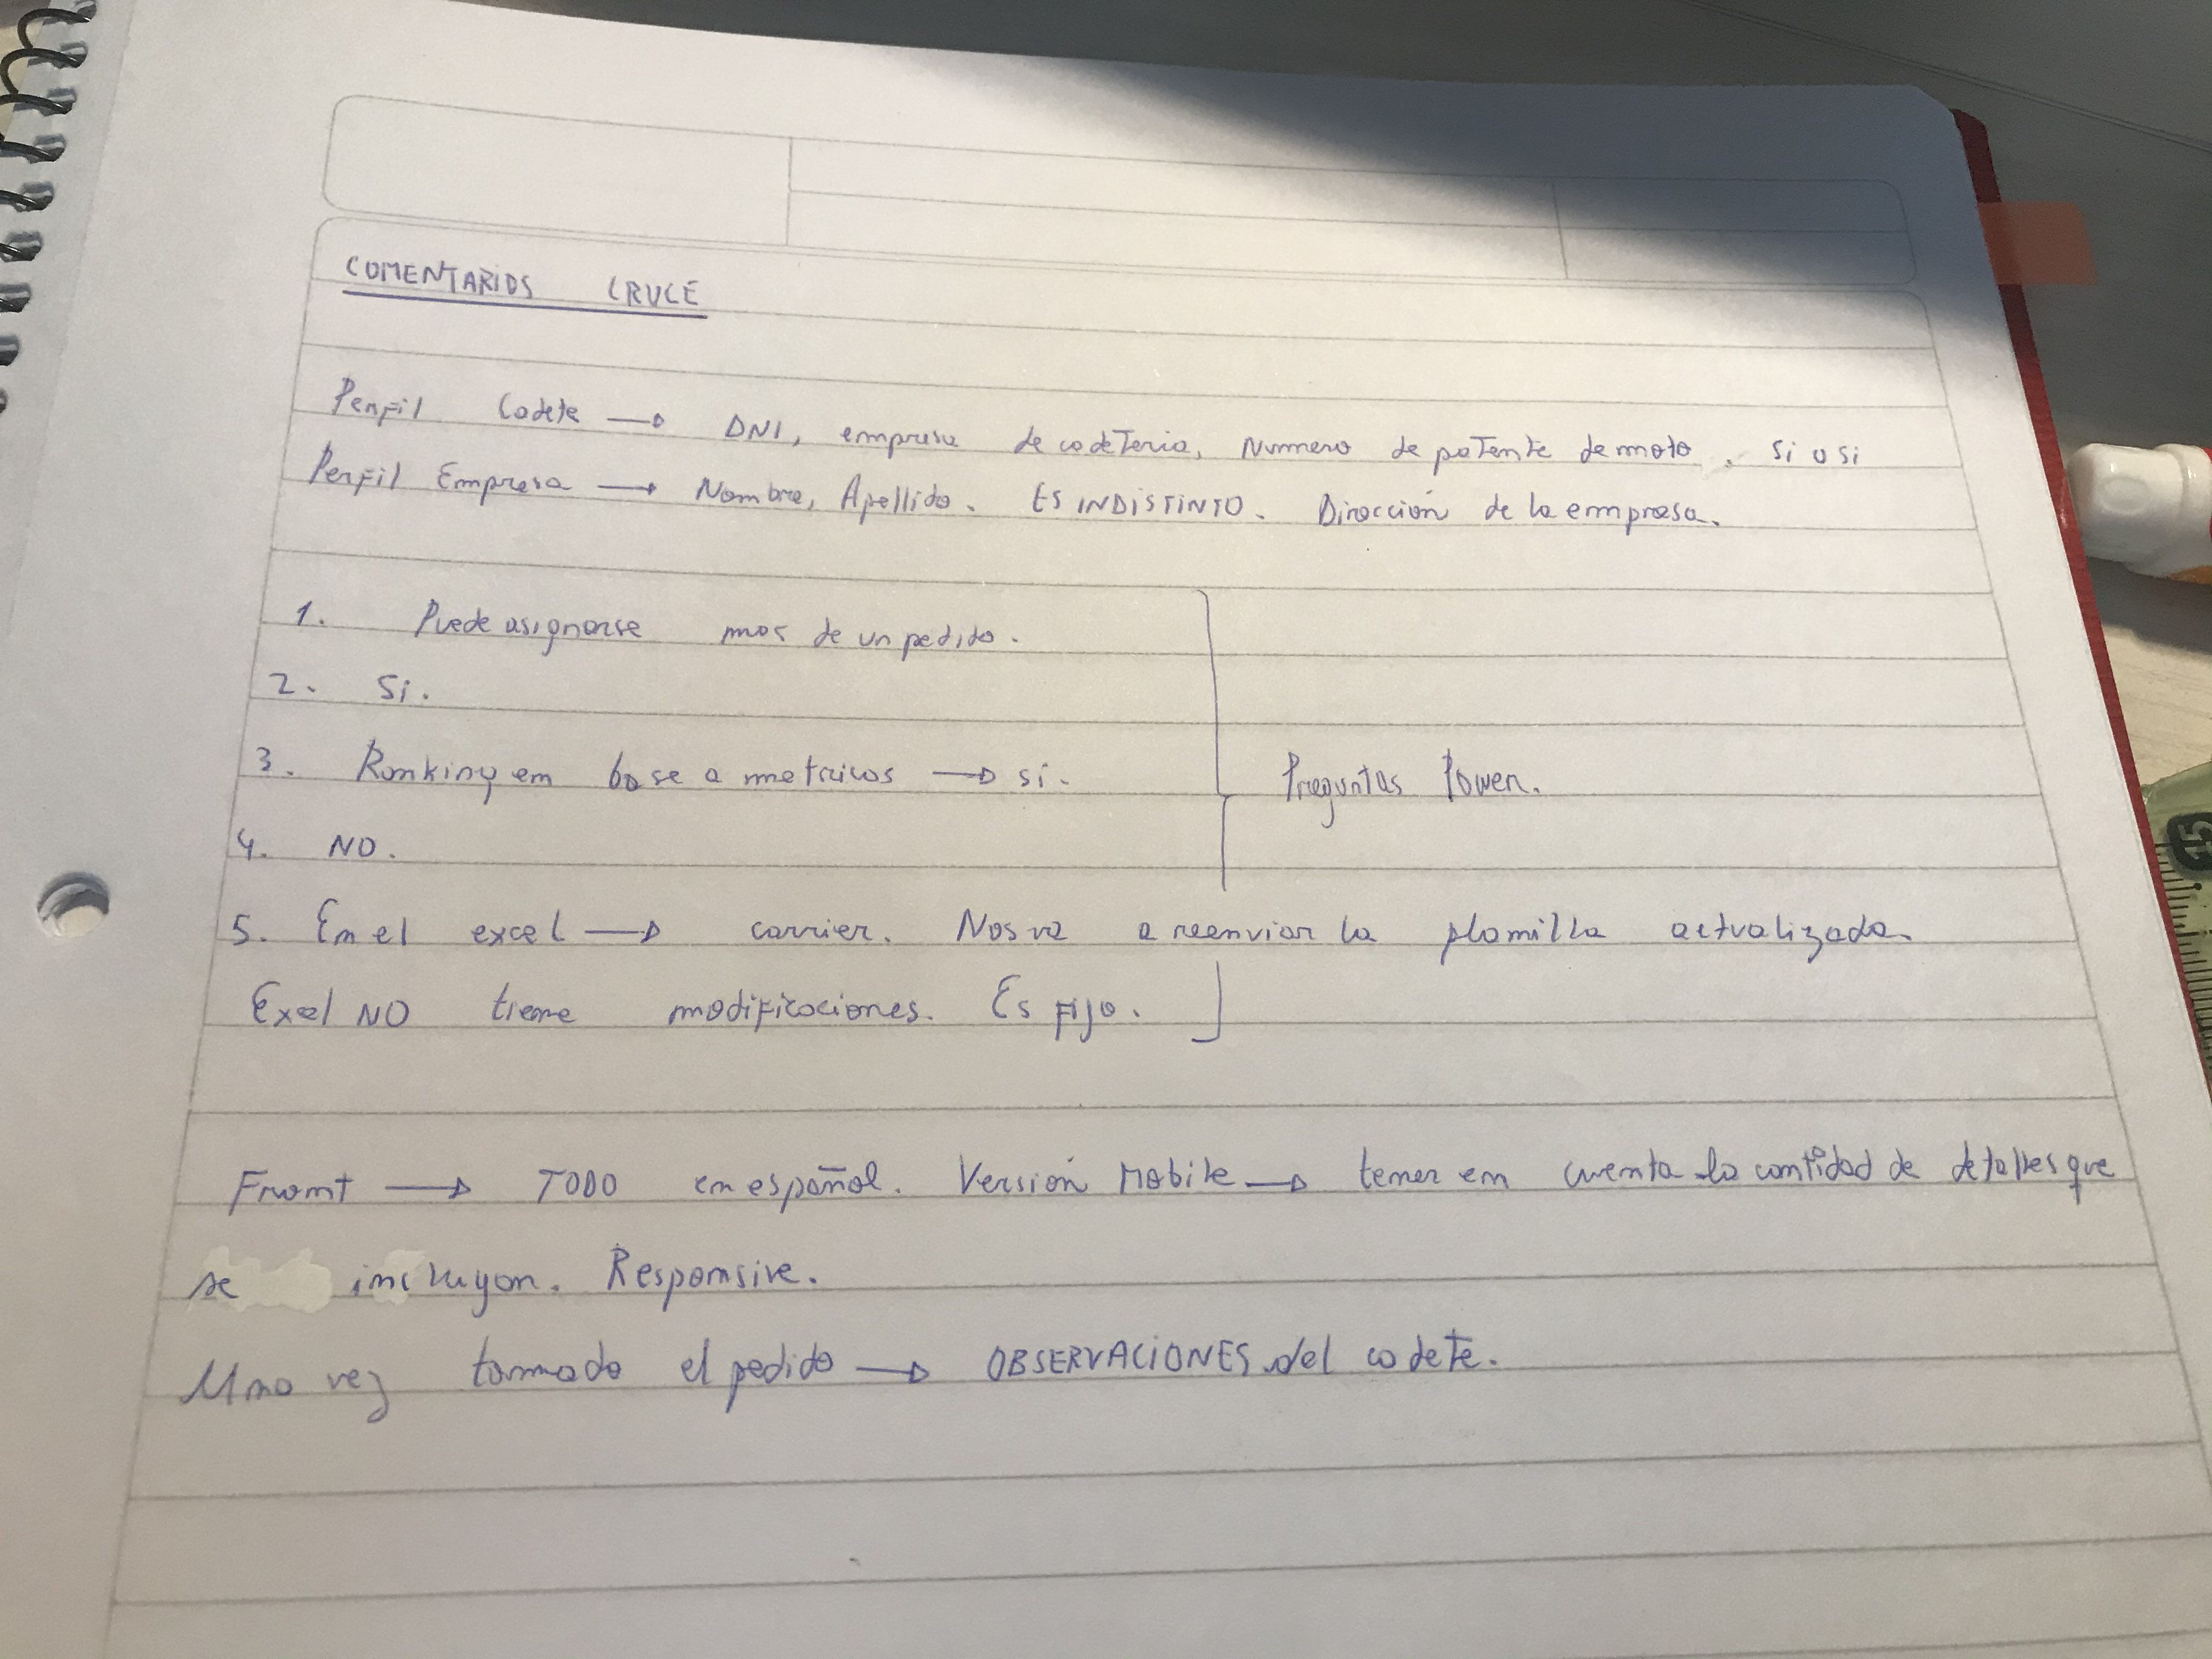 COMENTARIOS CRUCE
Perfil Cadete → DNI, empresa de cadeteria, Numero de patente de moto. Si o si
Perfil Empresa → Nombre, Apellido. ES INDISTINTO. Dirección de la empresa.
1. Puede asignarse mas de un pedido.
2. Si.
3. Ranking en base a metricas → si.
Preguntas Power.
4. NO.
5. En el excel → carrier. Nos va a reenviar la planilla actualizada.
Exel NO tiene modificaciones. Es fijo.
Front → TODO en español. Versión Mobile → tener en cuenta la cantidad de detalles que
se incluyan. Responsive.
Una vez tomado el pedido → OBSERVACIONES del cadete.
15